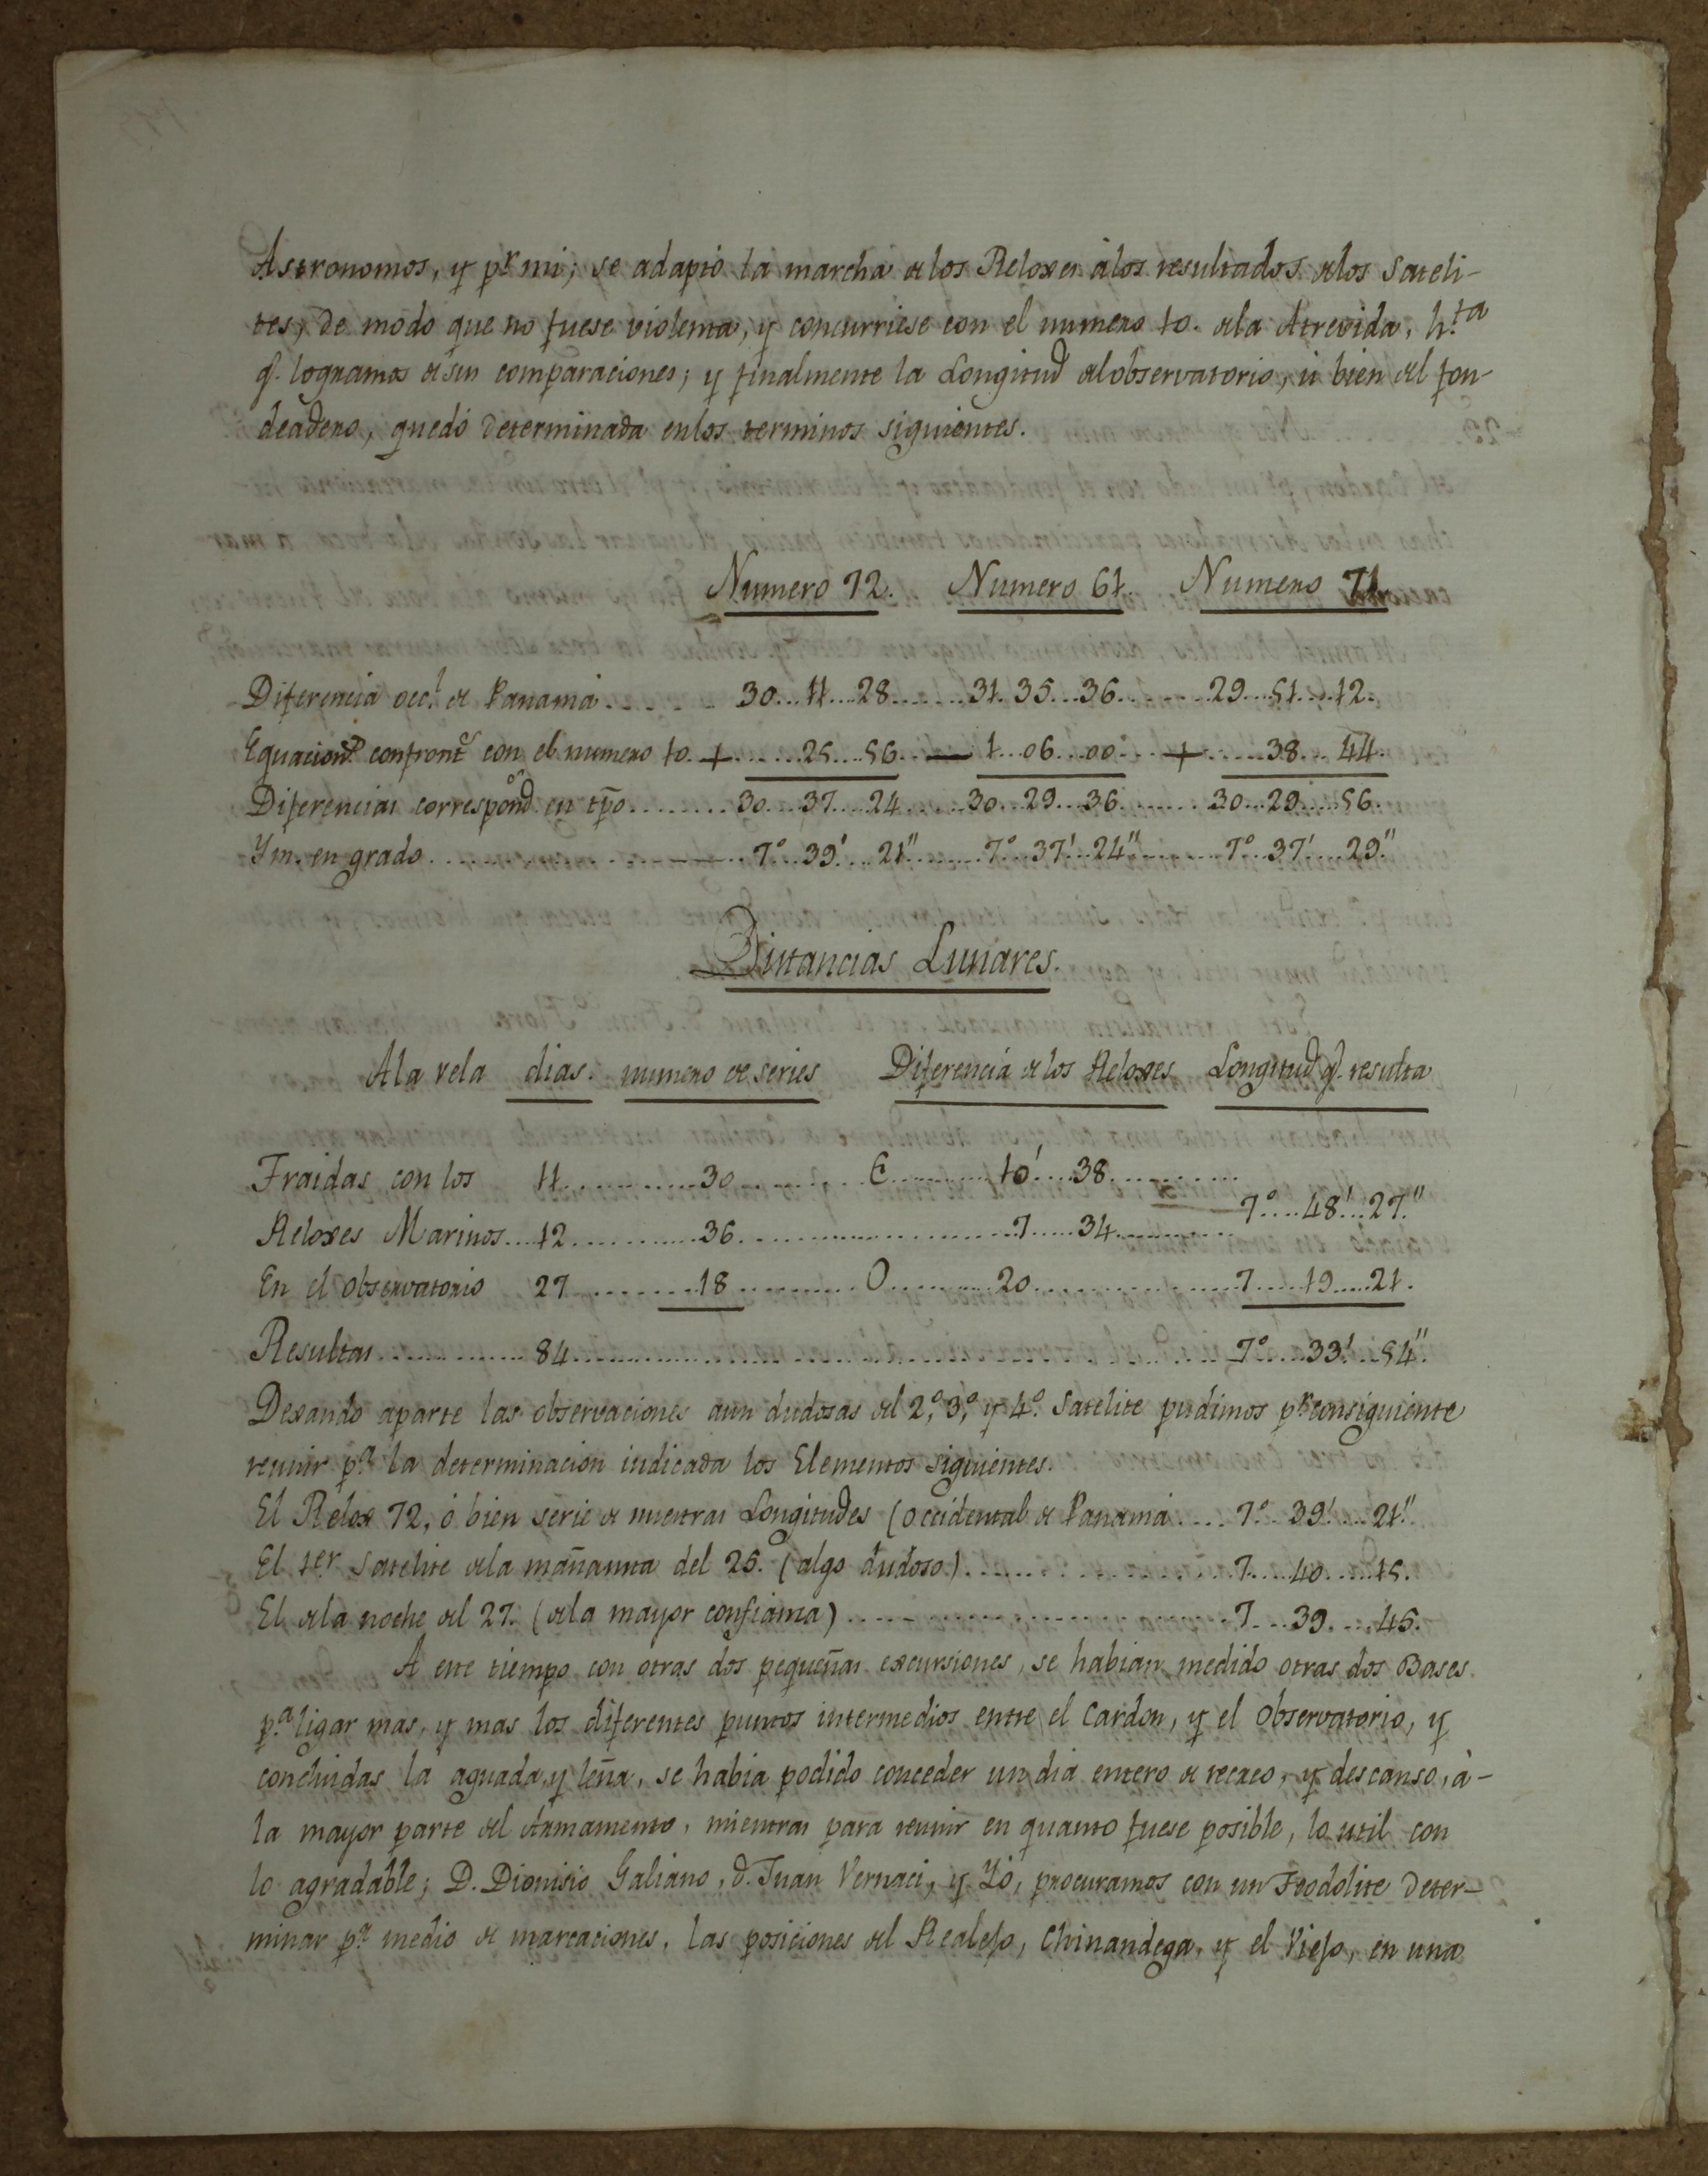 Astronomos, y pr. mi; se adaptó la marcha de los Reloxes álos resultados delos Sateli-
tes, de modo que no fuese violenta, y concurriese con el numero 10. dela Atrevida, h.ta
q.e logramos de sus comparaciones; y finalmente la Longitud del observatorio, ú bien del fon-
deadero, quedó determinada enlos terminos siguientes.
Numero 72. Numero 61. Numero 71.
Diferencia occ.l de Panamá ....... 30...11...28 ....... 31..35...36 ....... 29...51...12.
Equacion confront.e con el numero 10. + ...... 25...56. — 1...06...00 ... + ...... 38...44.
Diferencias correspond. en tpo ........ 30...37...24 ..... 30...29...36 ....... 30...29...56.
Ym. en grado ................... 7° 39' 21'' ....... 7° 37' 24'' ........ 7° 37' 29''
Distancias Lunares.
A la vela dias. numero de series Diferencia de los Reloxes Longitud q.e resulta
Traidas con los 11 ............ 30 ............ E ............ 10' ... 38 ............
7° ... 48' ... 27.''
Reloxes Marinos ... 12 ............ 36 ........................ 7 ..... 34 ............
En el observatorio 27 ............ 18 ............ O ............ 20 .................. 7 ..... 19 ..... 21.
Resultas ............... 84 .................................................... 7° ... 33' ... 54''.
Dexando aparte las observaciones aun dudosas del 2.° 3.° y 4.° Satelite pudimos pr. consiguiente
reunir p.a la determinacion indicada los Elementos siguientes.
El Relox 72, ó bien serie de nuestras Longitudes (occidental de Panamá .... 7° .. 39' .... 21''
El 1.er Satelite dela mañanita del 25. (algo dudoso) ........................ 7 ..... 40 .... 15.
El dela noche del 27. (dela mayor confianza) ........................ 7 .... 39 .... 45.
A este tiempo con otras dos pequeñas excursiones, se habian medido otras dos Bases
p.a ligar mas, y mas los diferentes puntos intermedios entre el Cardon, y el Observatorio, y
concluidas la aguada, y leña, se habia podido conceder un dia entero de recreo, y descanso, à-
la mayor parte del Armamento, mientras para reunir en quanto fuese posible, lo util con
lo agradable; D. Dionisio Galiano, d. Juan Vernaci, y Yó, procuramos con un Teodolite deter-
minar pr. medio de marcaciones, las posiciones del Realejo, Chinandega, y el Viejo, en una